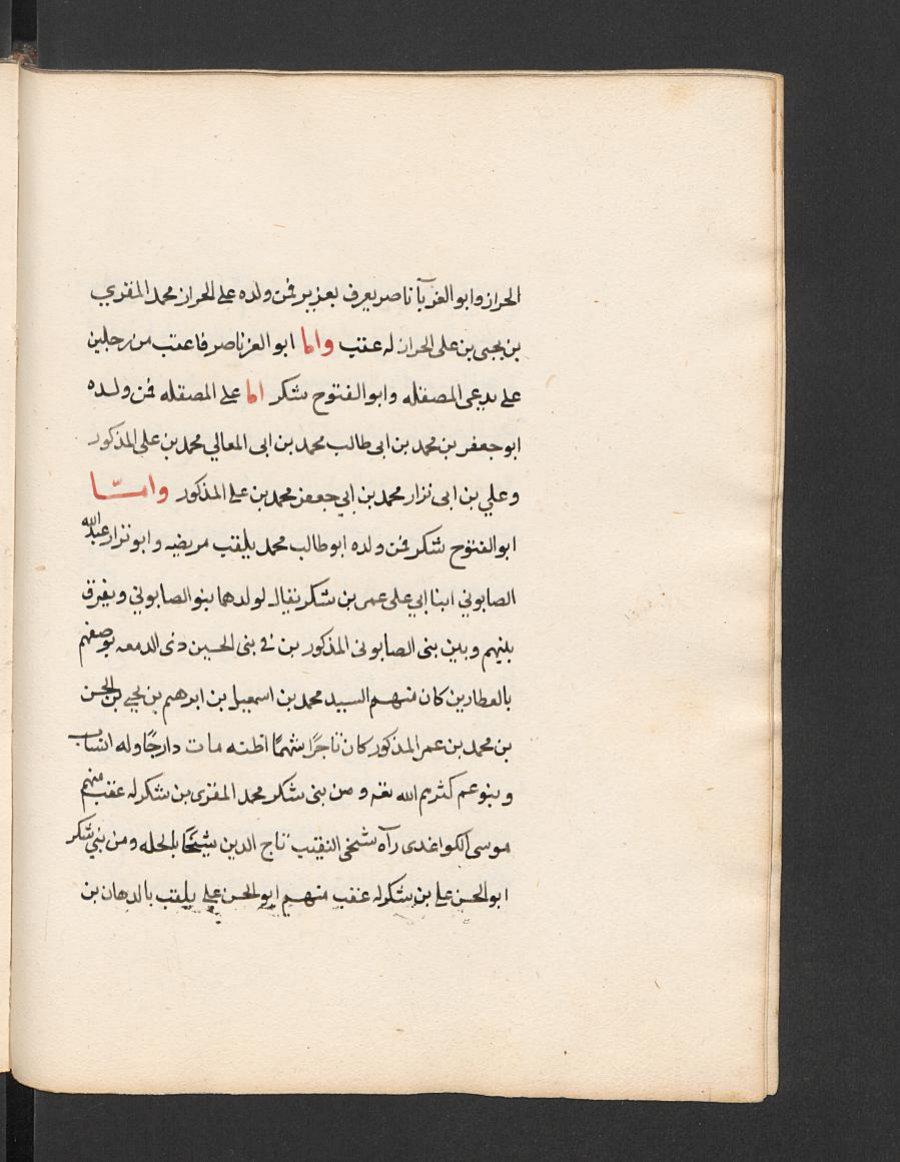 الحراز وابو الغر يآ ناصر يعرف بعزيز فمن ولده على الحراز محمد المقري
بن يحيى بن على الحراز له عقب واما ابو العز ناصر فاعقب من رجلين
على يدعى المصقله وابو الفتوح شكر اما على المصقله فمن ولده
ابو جعفر بن محمد بن ابى طالب محمد بن ابى المعالي محمد بن على المذكور
وعلي بن ابى نزار محمد بن ابي جعفر محمد بن على المذكور وامّا
ابو الفتوح شكر فمن ولده ابو طالب محمد يلقب مريضه وابو نزار عبدالله
الصابوني ابنا ابي على عمر بن شكر يقال لولدهما بنو الصابوني ويفرق
بينهم وبين بنى الصابونى المذكور بن فى بنى الحسين ذى الدمعه بوصفهم
بالعطارين كان منهم السيد محمد بن اسمعيل بن ابرهيم بن يحيى بن الحسن
بن محمد بن عمر المذكور كان تاجرًا شهمًا اظنه مات دارجًا وله انساب
وبنو عم كثرهم الله تعه ومن بنى شكر محمد المقرى بن شكر له عقب منهم
موسى الكواغدى رآه شيخى النقيب تاج الدين شيخًا بالحله ومن بني شكر
ابو الحسن على بن شكر له عقب منهم ابو الحسن على يلقب بالدهان بن